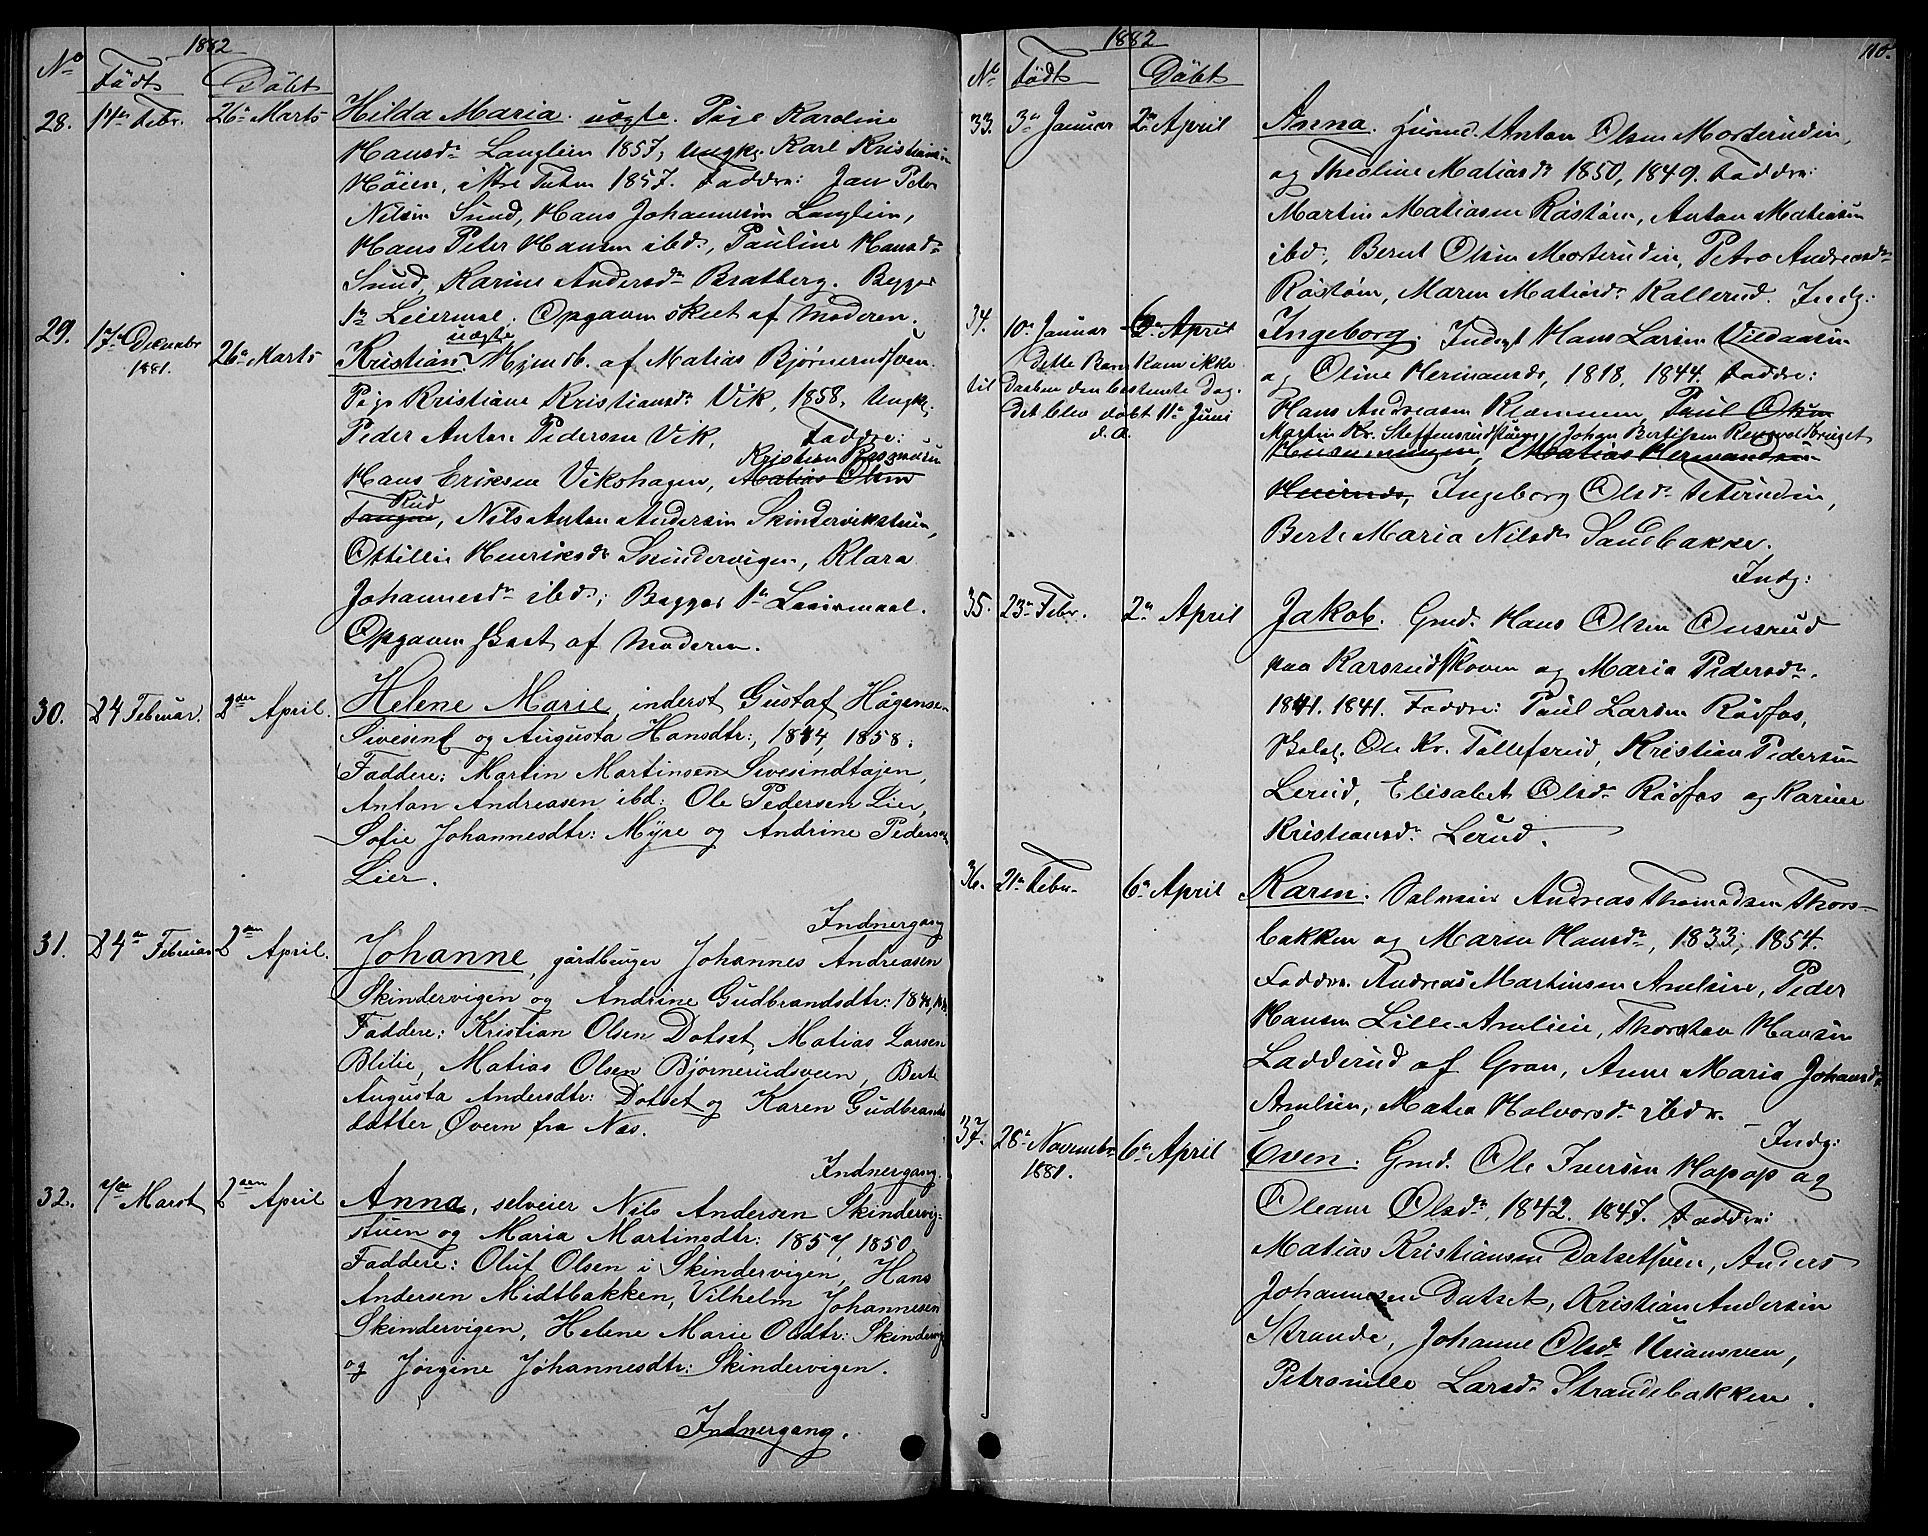 1882
No Födt Döbt
28. 14de Febr. 26de Marts Hilda Maria. uægte. Pige Karoline
Hansdr Langlien 1857, Ungk. Karl Kristiansen
Höien, Østre Toten 1857. Faddre: Jan Peter
Nilsen Sund, Hans Johannesen Langlien,
Hans Peter Hansen ibd., Pauline Hansdr
Sund, Karine Andersdr Bratberg. Begges
1ste Leiermal. Opgaven skeet af Moderen.
29. 17de December 1881. 26de Marts Kristian uægte Hjemdb. af Matias Bjørnerudsveen.
Pige Kristiane Kristiansdr Vik, 1858, Ungk.
Peder Anton Pedersen Vik, Faddre:
Hans Eriksen Vikshagen, Matias Olsen Kristian Rasmusen
Tangen Rud, Nils Anton Andersen Skindervikstuen,
Ottilie Henriksdr Skindervigen, Klara
Johannesdr ibd.; Begges 1ste Leiermaal.
Opgaven skeet af Moderen.
30. 24 Februar. 2den April. Helene Marie, inderst Gustaf Hågensen
Sivesind og Augusta Hansdtr:, 1844, 1858;
Faddere: Martin Martinsen Sivesindtajen,
Anton Andreasen ibd: Ole Pedersen Lier,
Sofie Johannesdtr: Myre og Andrine Pedersdr
Lier.
Indnergang
31. 24de Februar 2den April. Johanne, gårdbruger Johannes Andreasen
Skindervigen og Andrine Gudbrandsdtr:
Faddere: Kristian Olsen Dotset, Matias Larsen
Blilie, Matias Olsen Bjørnerudsveen, Berte
Augusta Andersdtr: Dotset og Karen Gudbrands
datter, Øvern fra Næs.
Indnergang.
32. 7de Marst 2den April Anna, selveier Nils Andersen Skindervig-
stuen og Maria Martinsdtr: 1857, 1850,
Faddere: Oluf Olsen i Skindervigen, Hans
Andersen Midtbakken, Vilhelm Johannesen
Skindervigen, Helene Marie Olsdtr: Skindervig
og Jørgine Johannesdtr: Skindervigen.
Indnergang.
1882
110.
No Födt Döbt
33. 3de Januar 2den April Anna. Gmd. Anton Olsen Mosterudein,
og Theoline Matiasdr 1850, 1849. Faddre:
Martin Matiasen Røstøen, Anton Matiasen
ibd, Bernt Olsen Mosterudein, Petra Andreasdr
Røstøen, Maren Matiasdr Kallerud. Indg:
34. 10de Januar 6te April Ingeborg. Inderst Hans Larsen Vildaasen
dette Barn kom ikke
til Daaben den bestemte Dag.
det blev døbt 11te Juni
d.a.
og Oline Hermansdr, 1818, 1844. Faddre:
Hans Andreasen Klommen, Paul Olsen
Martin Kr. Steffensrudstuen, Johan Bertilsen Rensvoldbruget
Matias Hermandsen
Ingeborg Olsdr Seterudein,
Berte Maria Nilsdr Sandbakke.
Indg:
35. 23de Febr. 2den April Jakob. Gmd. Hans Olsen Onsrud
paa Karsrudskoven og Maria Pedersdr.
1841. 1841. Faddre: Paul Larsen Rødfos,
Ole Kr. Tollefsrud, Kristian Pedersen
Lerud, Elisabet Olsdr Rødfos og Karine
Kristiansdr Lerud.
36. 21de Febr. 6te April Karen. Selveier Andreas Thomadsen Thors-
bakken og Maren Hansdr, 1833, 1854.
Faddre. Andreas Martinsen Amlien, Peder
Hansen Lille Amlien, Thorsten Hansen
Ladderud af Gran, Anne Maria Johansdr
Amlien, Matea Halvorsdr ibdm.
Indg:
37. 28de November 1881. 6te April Even. Gmd. Ole Iversen Hapap og
Oleane Olsdr, 1842. 1847. Faddre:
Matias Kristiansen Datsetsveen, Anders
Johannesen Datset, Kristian Andersen
Strande, Johanne Olsdr
Petronille Larsdr Strandebakken.